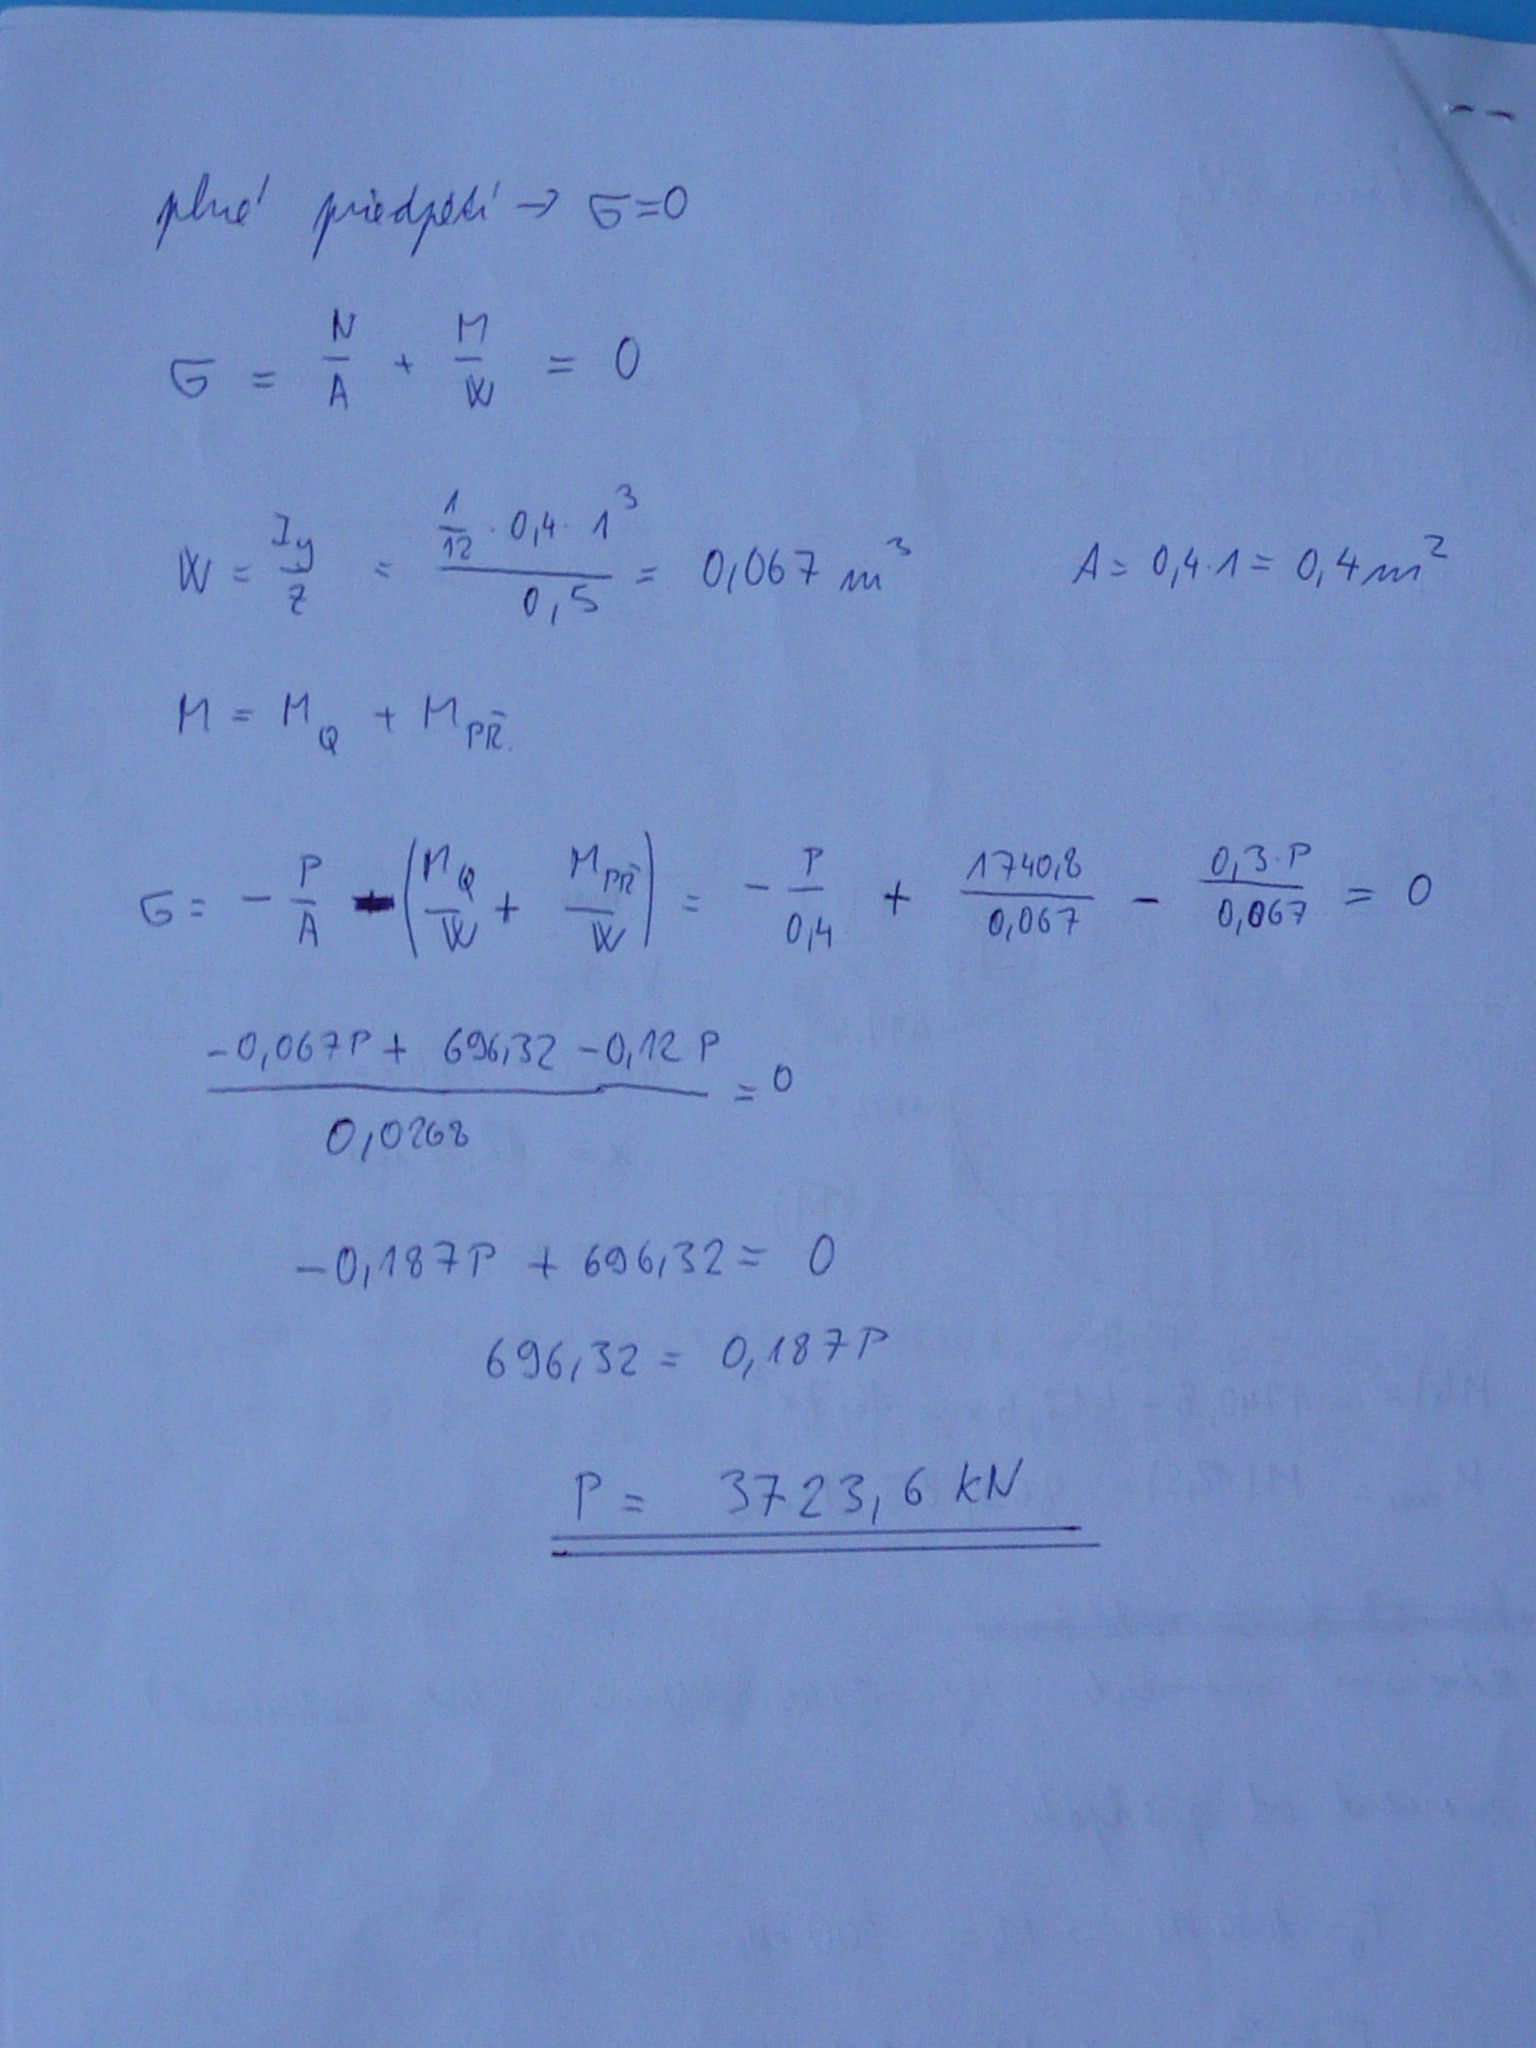 plné předpětí → σ=0
σ = N/A + M/W = 0
W = Iy/z = (1/12 · 0,4 · 1³)/0,5 = 0,067 m³ A = 0,4·1 = 0,4 m²
M = M_Q + M_PŘ.
σ = - P/A - (M_Q/W + M_PŘ/W) = - P/0,4 + 1740,8/0,067 - 0,3·P/0,067 = 0
(-0,067P + 696,32 - 0,12P)/0,0268 = 0
-0,187P + 696,32 = 0
696,32 = 0,187P
P = 3723,6 kN